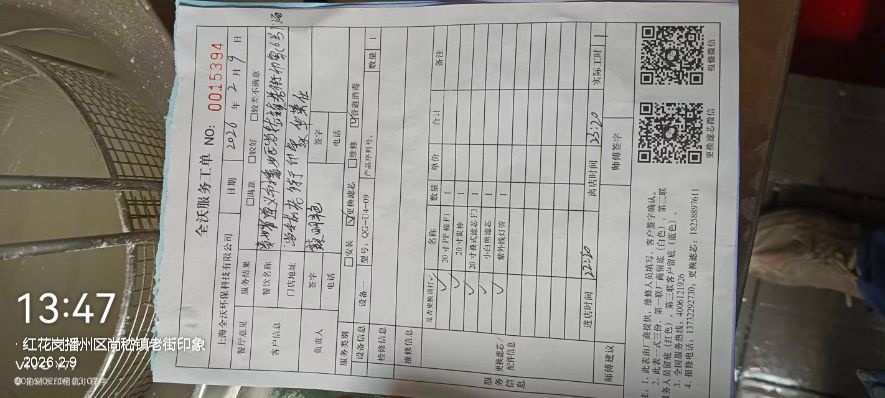 全沃服务工单 NO: 0015394
上海全沃环保科技有限公司 日期 2026 年 2 月 9 日
餐厅意见 服务结果 □满意 □较好 □较差不满意
客户信息 餐饮名称
门店地址
负责人 签字 签字
电话 电话
服务类别 □安装 ☑更换滤芯 □维修 ☑管道消毒
设备信息 设备 型号: QG-U4-09 产品序列号: 数量 1
检修信息
维修信息
服务信息 更换滤芯/配件信息 是否更换请打✓ 名称 数量 单价 合计 备注
✓ 20寸PP棉F1 1
✓ 20寸炭棒 1
✓ 20寸叠式滤芯F3 1
✓ 小白熊滤芯 1
紫外线灯管 1
进店时间 22:20 离店时间 23:20 实际工时 1
师傅建议 师傅签字
注: 1. 此表由厂商提供, 维修人员填写, 客户签字确认。
2. 此表一式三份, 第一联厂商留底(白色), 第二联
服务人员留底(红色), 第三联客户留底(蓝色)。
3. 全国服务热线: 4006121926
4. 报修电话: 13732292730; 更换滤芯: 18258897611
更换滤芯微信
报修微信
13:47
红花岗播州区尚嵇镇老街印象
2026.2.9